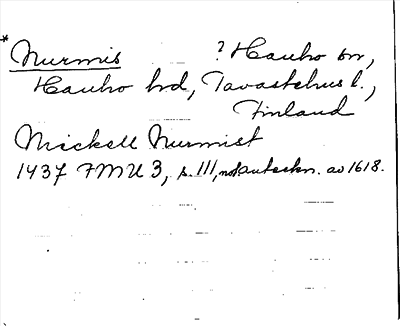 * Nurmis ? Hauho sn,
Hauho hd, Tavastehus l.,
Finland
Mickell Nurmist
1437 FMU 3, s. 111, not. anteckn. av 1618.